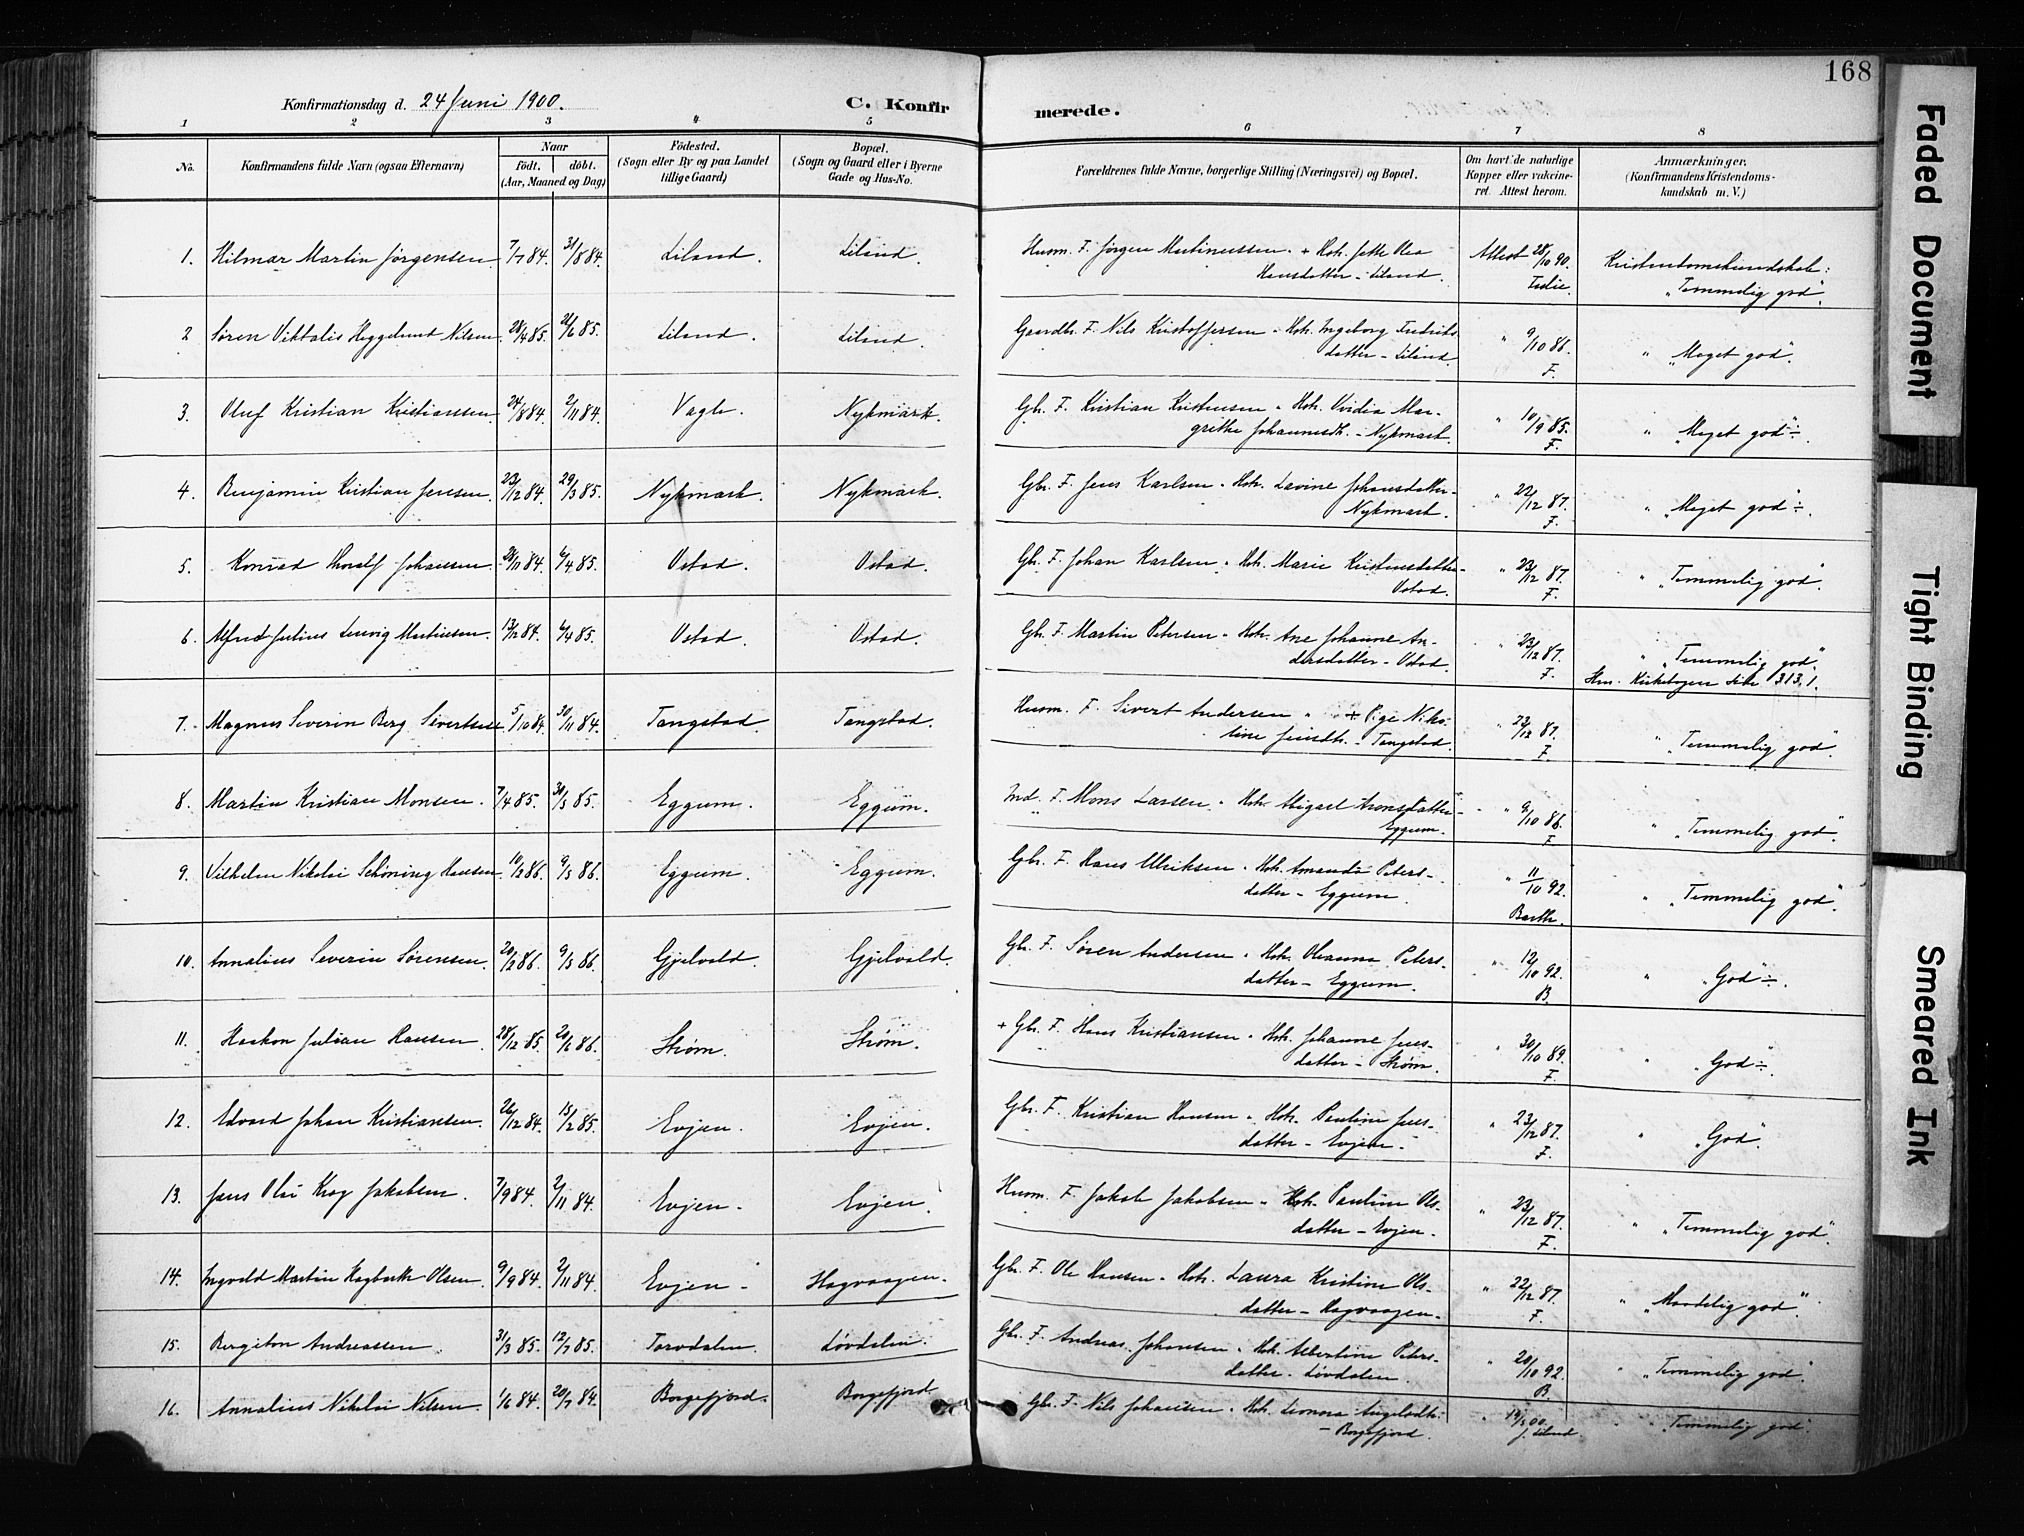 168
Konfirmationsdag d. 24 Juni 1900.
C. Konfir
merede.
1 2 3 4 5 6 7 8
No.
Konfirmandens fulde Navn (ogsaa Efternavn)
Naar
födt. döbt.
(Aar, Maaned og Dag)
Födested.
(Sogn eller By og paa Landet
tillige Gaard)
Bopæl.
(Sogn og Gaard eller i Byerne
Gade og Hus-No.
Forældrenes fulde Navne, borgerlige Stilling (Næringsvei) og Bopæl.
Om havt de naturlige
Kopper eller vakcine-
ret. Attest herom.
Anmærkninger.
(Konfirmandens Kristendoms-
kundskab m. V.)
1. Hilmar Martin Jørgensen. 7/7 84. 31/8 84. Liland. Liland. Husm. F. Jørgen Martinussen. + Hst. Jette Ols
Hansdatter - Liland. Attest 28/10 90. Kristendomskundskab:
"Temmelig god".
2 Søren Viktalis Heggelund Nilsen. 28/4 85. 21/6 85. Liland. Liland. Gaardbr. F. Nils Kristoffersen. Hst. Ingeborg Fredriks-
datter - Liland. " 9/10 86. " "Meget god".
F.
3. Oluf Kristian Kristianssen 24/8 84. 2/11 84. Vagle. Nykmark. Gbr. F. Kristian Kristensen. Hst. Mar-
grethe Johannesdt. - Nykmark. " 10/9 85. " "Meget god"÷.
F.
4. Benjamin Kristian Jensen. 23/12 84. 29/3 85. Nykmark. Nykmark. Gbr. F. Jens Karlsen. Hst. Lavine Johansdatter-
Nykmark. " 22/12 87. " "Meget god"÷.
F.
5. Konrad Thoralf Johansen. 28/11 84. 6/4 85. Ustad. Ustad. Gbr. F. Johan Karlsen. Hst. Marie Kristensdatter-
Ustad. " 23/12 87. " "Temmelig god".
F.
6. Alfred Julius Ludvig Martinsen. 13/12 84. 6/4 85. Ustad. Ustad. Gbr. F. Martin Petersen. Hst. Ane Johanne An-
dersdatter - Ustad. " 23/12 87. " "Temmelig god".
F. Kirkebogen Side 313, 1.
7. Magnus Severin Berg Sivertsen 5/10 84. 30/11 84. Tangstad. Tangstad. Husm. F. Sivert Andersen " + Pige Niko-
line Jensdt. - Tangstad. " 22/12 87. " "Temmelig god".
F.
8. Martin Kristian Monsen. 7/4 85. 31/5 85. Eggum. Eggum. Ind. F. Mons Larsen. Hst. Abigael Aronsdatter-
Eggum. " 9/10 86. " "Temmelig god".
F
9. Vilhelm Nikolai Schöning Hansen. 10/2 86. 9/5 86. Eggum. Eggum. Gbr. F. Hans Ulriksen. Hst. Amanda Peters-
datter - Eggum. " 11/10 92. " "Temmelig god".
Barth.
10. Annalius Severin Sörensen. 20/2 86. 9/5 86. Gjelvold. Gjelvold. Gbr. F. Sören Andersen. Hst. Oleanna Peters-
datter - Eggum. " 12/10 92. " "God"÷.
B.
11. Haakon Julian Hansen. 28/12 85. 20/6 86. Strøm. Strøm. + Gbr. F. Hans Kristiansen. Hst. Johanne Jens-
datter - Strøm. " 30/10 89. " "God"÷.
F.
12. Edvard Johan Kristiansen. 26/12 84. 15/2 85. Evjen. Evjen. Gbr. F. Kristian Hansen. Hst. Pauline Jens-
datter - Evjen. " 23/12 87. " "God".
F.
13. Jens Olai Krog Jakobsen. 7/9 84. 2/11 84. Evjen. Evjen. Husm. F. Jakob Jakobsen. Hst. Pauline Ols-
datter - Evjen. " 23/12 87. " "Temmelig god".
F.
14. Ingvald Martin Hagbarth Olsen. 9/9 84. 2/11 84. Evjen. Hagvaagen. Gbr. F. Ole Hansen. Hst. Laura Kristine Ols-
datter - Hagvaagen. " 22/12 87. " "Maadelig god".
F.
15. Bergiton Andreassen. 31/3 85. 12/7 85. Torvdalen. Løvdalen. Gbr. F. Andreas Johansen. Hst. Albertine Peters-
datter. Løvdalen. " 20/10 92. " "Temmelig god".
B.
16. Annalius Nikolai Nilsen. 1/6 84. 20/7 84. Borgefjord. Borgefjord Gbr. F. Nils Johansen. Hst. Leonora
- Borgefjord. " "Temmelig god".
Faded Document
Tight Binding
Smeared Ink